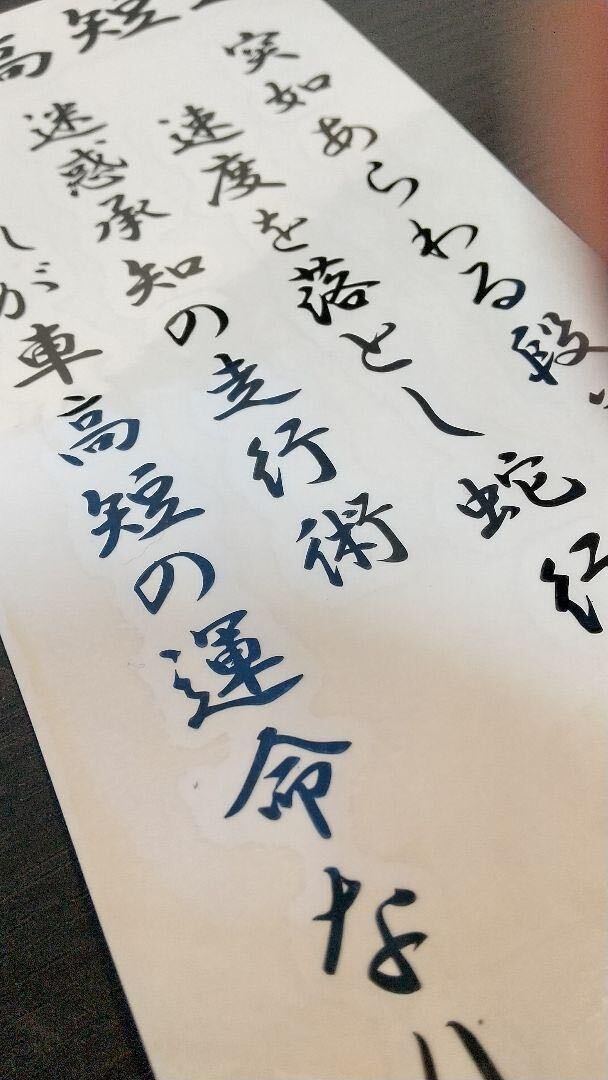 高短
突如あらわる段
速度を落とし蛇行
迷惑承知の走行術
が車高短の運命な